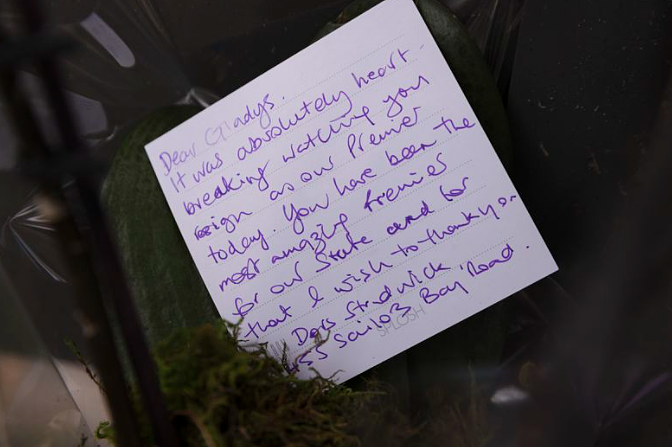 Dear Gladys.
It was absolutely heart-
breaking watching you
resign as our Premier
today. You have been the
most amazing Premier
for our State and for
that I wish to thank you.
55 Sailors Bay Road.
SPLOSH